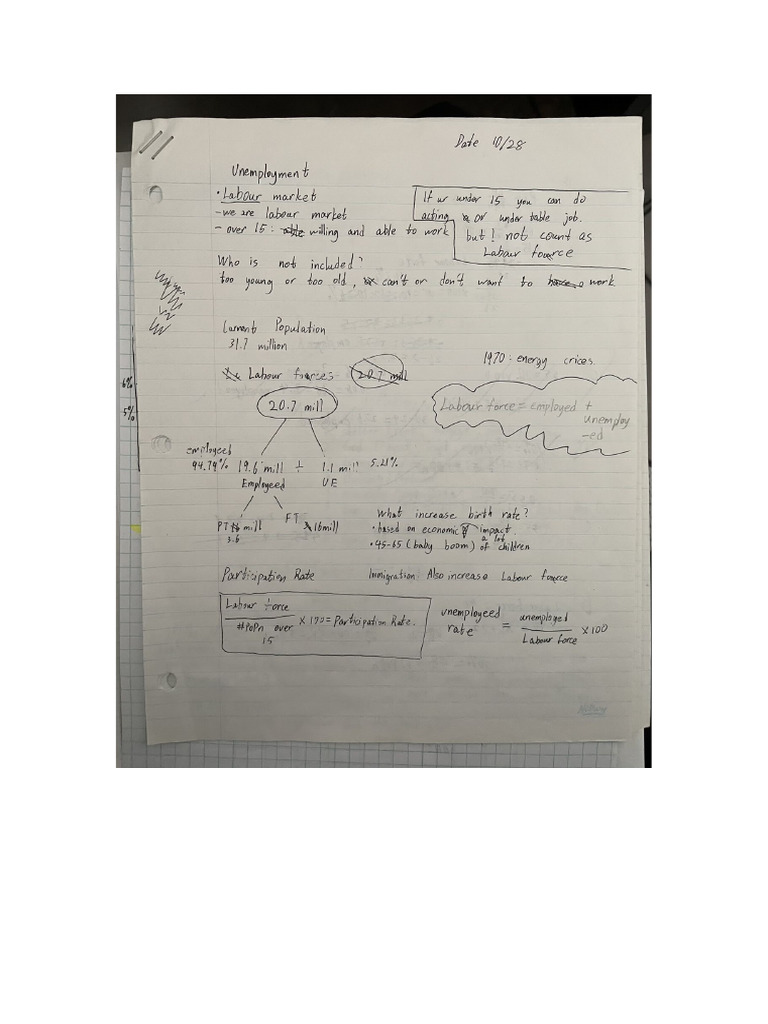 Date 10/28
Unemployment
• Labour market
- we are labour market
- over 15: able willing and able to work
If ur under 15 you can do
acting or under table job.
but! not count as
Labour fource
Who is not included?
too young or too old, can't or don't want to work
Current Population
31.7 million
Labour fources 20.7 mill
20.7 mill
1970: energy crices.
Labour force = employed +
unemploy
-ed
6%
5%
employeed
94.79% 19.6 mill + 1.1 mill 5.21%
Employeed UE
PT mill FT 16 mill
3.6
What increase birth rate?
• based on economic impact
a lot
• 45-65 (baby boom) of children
Participation Rate
Immigration: Also increase Labour fource
Labour force
#Popn over × 100 = Participation Rate.
15
unemployeed
rate = unemployed
Labour force × 100